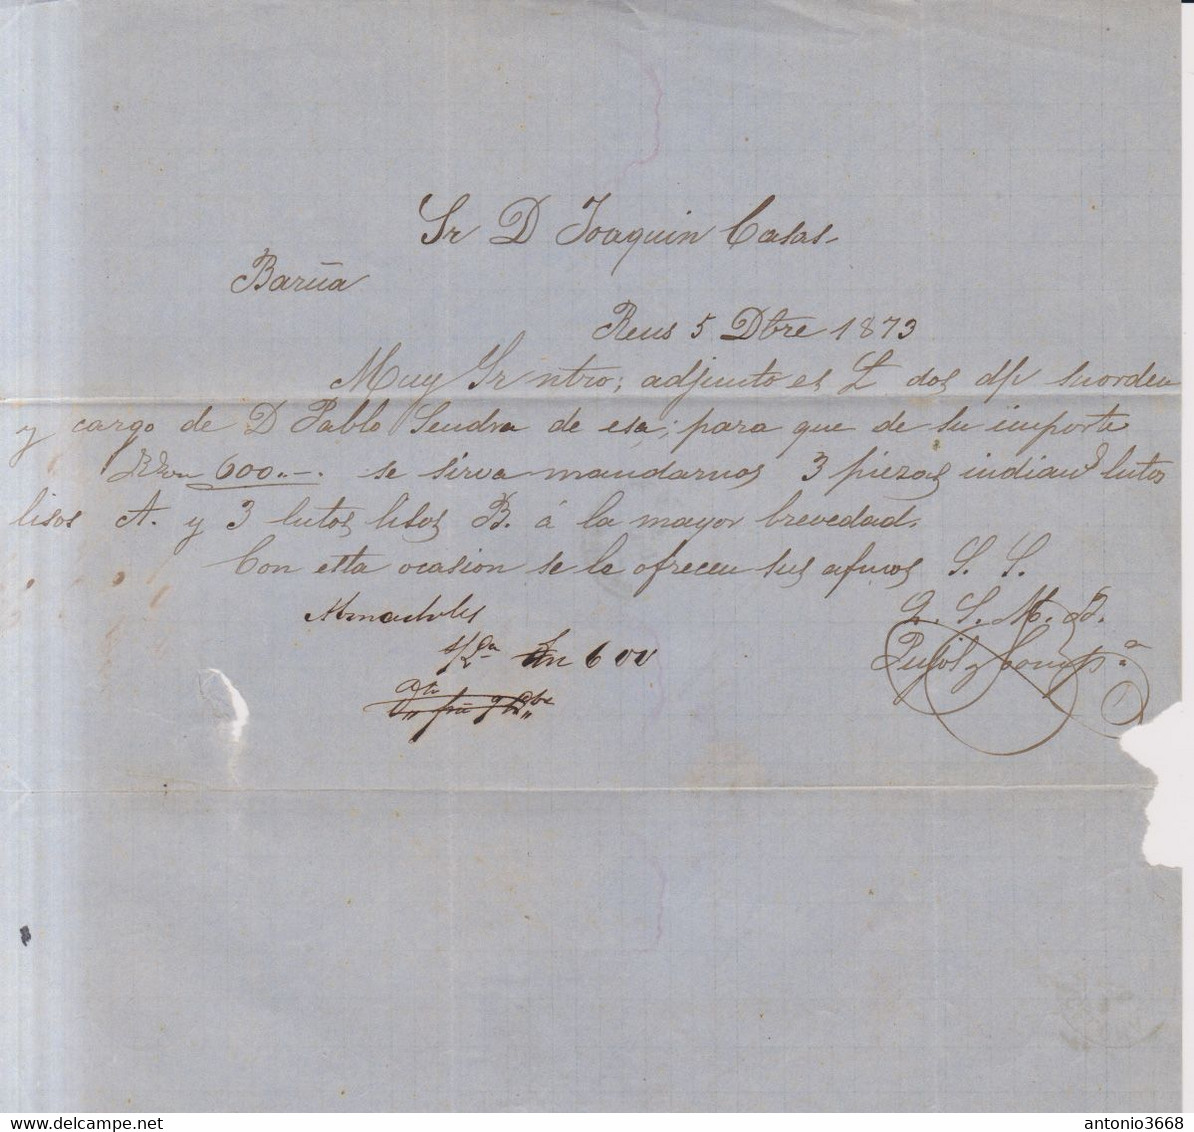 Sr D Joaquin Casas.
Barña
Reus 5 Dbre 1873
Muy Sr ntro; adjunto es L dos d/v su orden
y cargo de D Pablo Sendra de esa; para que de su importe
RVon 600.— se sirva mandarnos 3 piezas indianas lutos
lisos A. y 3 lutos lisos B. á la mayor brevedad.
Con esta ocasion se le ofrecen sus afmos S. S.
Q. S. M. B.
Pujol y Comp.a
600
antonio3668